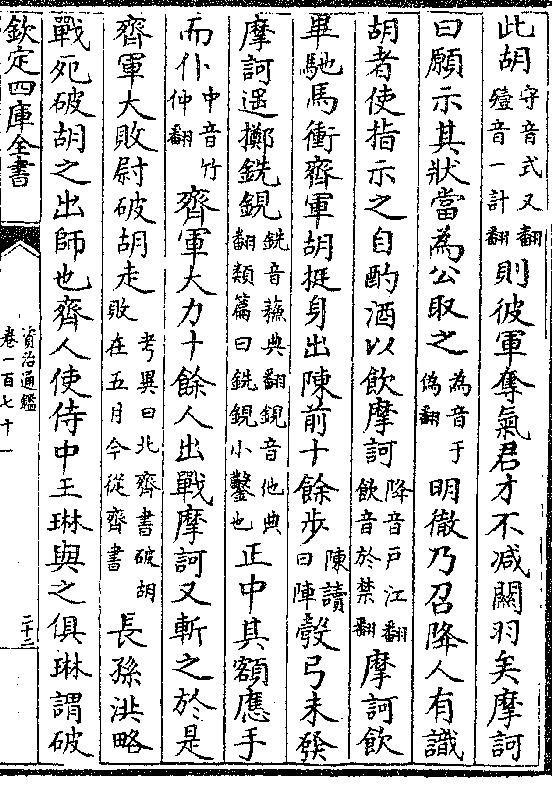 此胡守音式又翻殪音一計翻則彼軍奪氣君才不減關羽矣摩訶
曰願示其狀當為公取之為音于偽翻明徹乃召降人有識
胡者使指示之自酌酒以飲摩訶降音戶江翻飲音於禁翻摩訶飲
畢馳馬衝齊軍胡挺身出陳前十餘步陳讀曰陣彀弓未發
摩訶遥擲銑鋧銑音蘓典翻鋧音他典翻類篇曰銑鋧小鑿也正中其額應手
而仆中音竹仲翻齊軍大力十餘人出戰摩訶又斬之於是
齊軍大敗尉破胡走考異曰北齊書破胡敗在五月今從齊書長孫洪略
戰死破胡之出師也齊人使侍中王琳與之俱琳謂破
欽定四庫全書
資治通鑑
卷一百七十一
二十二